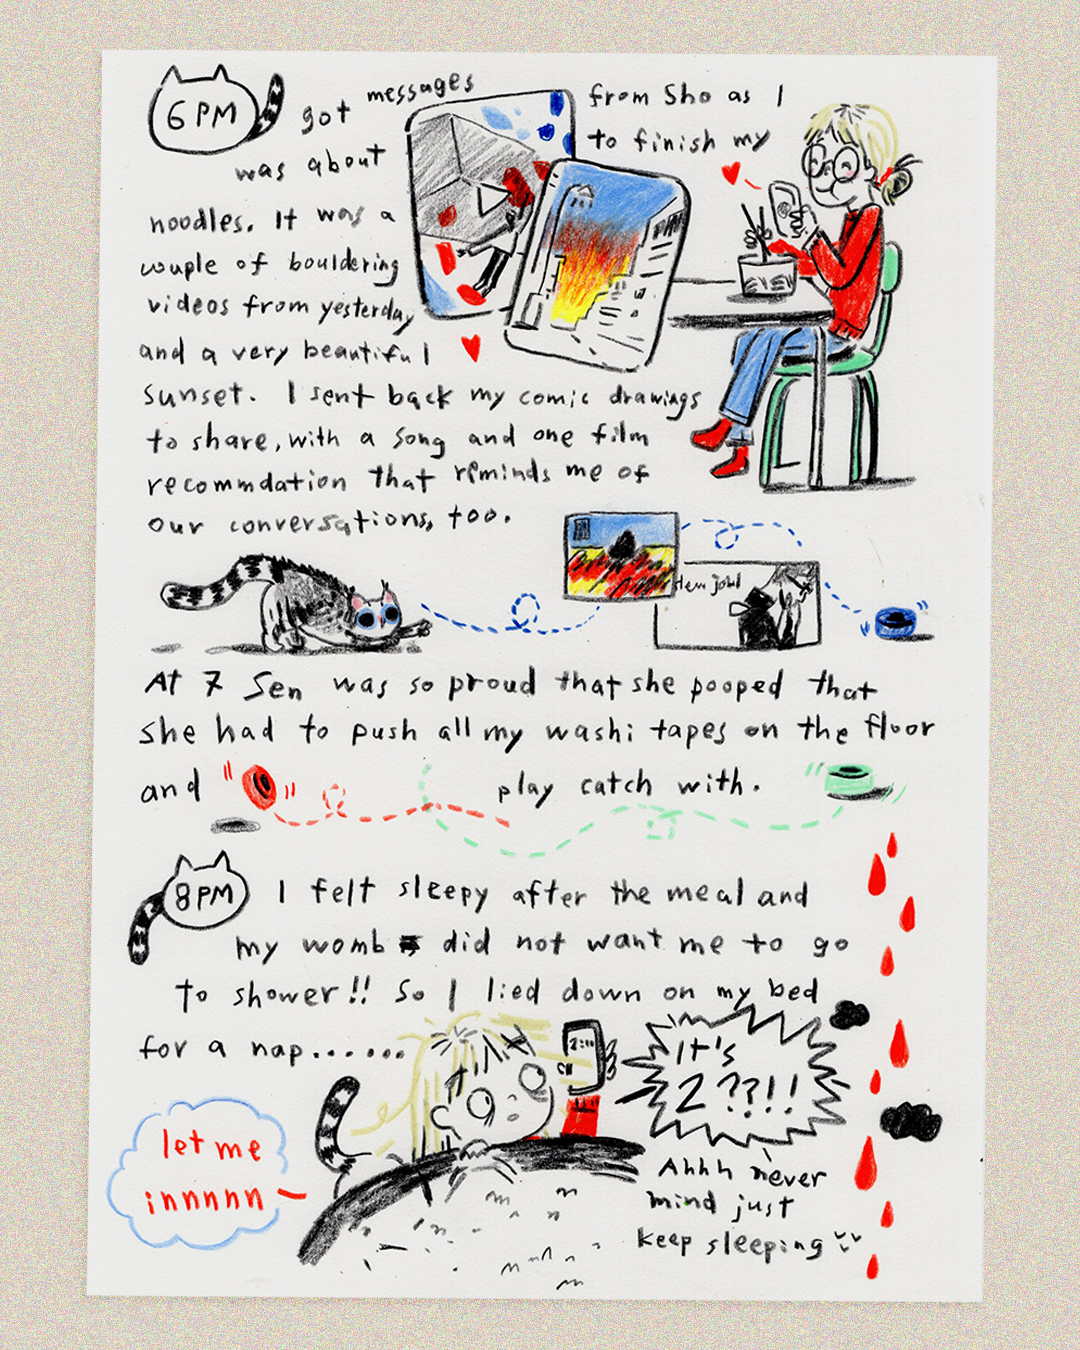 6 PM got messages from Sho as I
was about to finish my
noodles. It was a
couple of bouldering
videos from yesterday
and a very beautiful
sunset. I sent back my comic drawings
to share, with a song and one film
recommdation that reminds me of
our conversations, too.
At 7 Sen was so proud that she pooped that
she had to push all my washi tapes on the floor
and play catch with.
8PM I felt sleepy after the meal and
my womb did not want me to go
to shower!! So I lied down on my bed
for a nap......
2:00
It's
2??!!
let me
innnnn
Ahhh never
mind just
keep sleeping